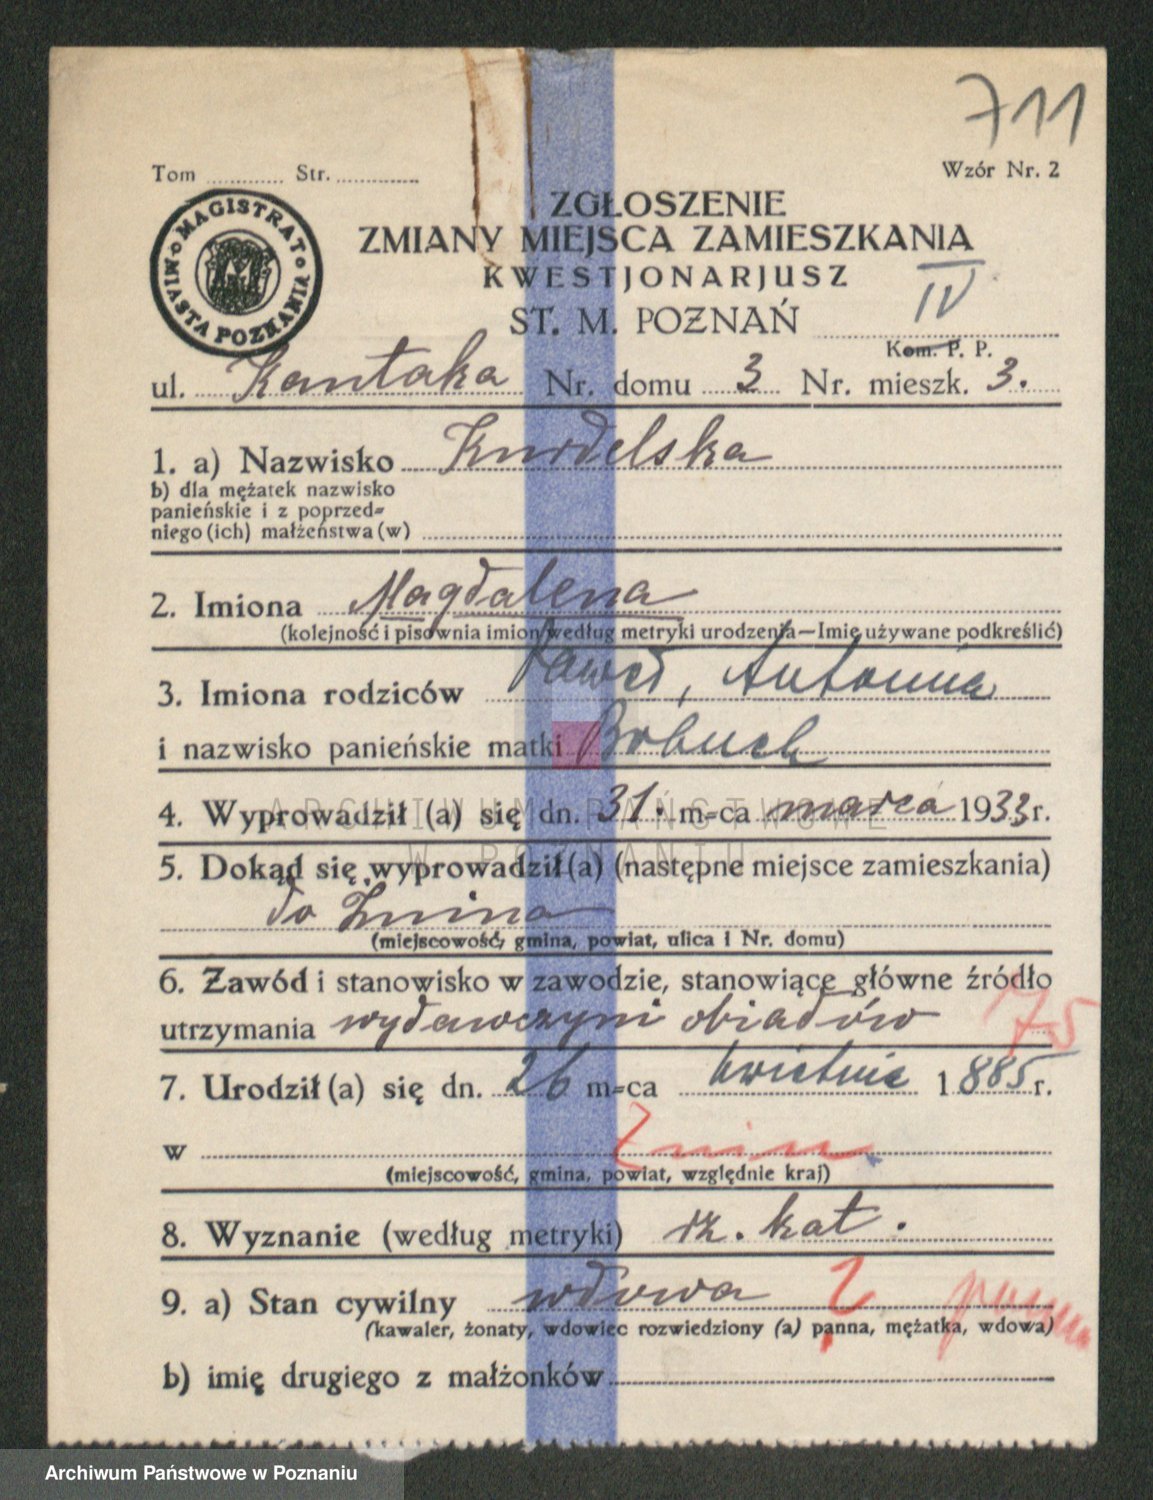 711
Tom ............ Str. ............
Wzór Nr. 2
MAGISTRAT MIASTA POZNANIA
ZGŁOSZENIE
ZMIANY MIEJSCA ZAMIESZKANIA
KWESTJONARJUSZ
IV
ST. M. POZNAŃ
Kom. P. P.
ul. Kantaka Nr. domu 3 Nr. mieszk. 3.
1. a) Nazwisko Knrdelska
b) dla mężatek nazwisko
panieńskie i z poprzed=
niego (ich) małżeństwa (w)
2. Imiona Magdalena
(kolejność i pisownia imion według metryki urodzenia—Imię używane podkreślić)
3. Imiona rodziców Paweł, Antonina
i nazwisko panieńskie matki
4. Wyprowadził (a) się dn. 31. m=ca marca 1933 r.
ARCHIWUM PAŃSTWOWE
W POZNANIU
5. Dokąd się wyprowadził (a) (następne miejsce zamieszkania)
do Żnina
(miejscowość, gmina, powiat, ulica i Nr. domu)
6. Zawód i stanowisko w zawodzie, stanowiące główne źródło
utrzymania wydawczyni obiadów 75
7. Urodził (a) się dn. 26 m=ca kwietnia 1885 r.
w Żnin
(miejscowość, gmina, powiat, względnie kraj)
8. Wyznanie (według metryki) rz. kat.
9. a) Stan cywilny wdowa ? panna
(kawaler, żonaty, wdowiec rozwiedziony (a) panna, mężatka, wdowa)
b) imię drugiego z małżonków
Archiwum Państwowe w Poznaniu